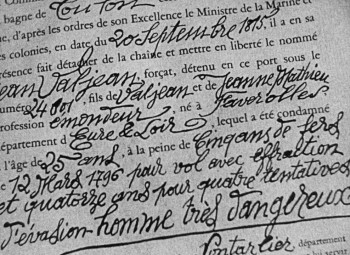 bagne de Toulon
que, d'après les ordres de son Excellence le Ministre de la Marine et
es colonies, en date du 20 Septembre 1815, il a en sa
résence fait détacher de la chaîne et mettre en liberté le nommé
Jean Valjean, forçat, détenu en ce port sous le
uméro 24601, fils de Valjean et de Jeanne Mathieu
rofession émondeur, né à Faverolles,
département d'Eure de Loir, lequel a été condamné
à l'âge de 25 ans, à la peine de Cinq ans de fers
le 12 Mars 1796 pour vol avec effraction
et quatorze ans pour quatre tentatives
d'évasion homme très dangereux
Pontarlier département